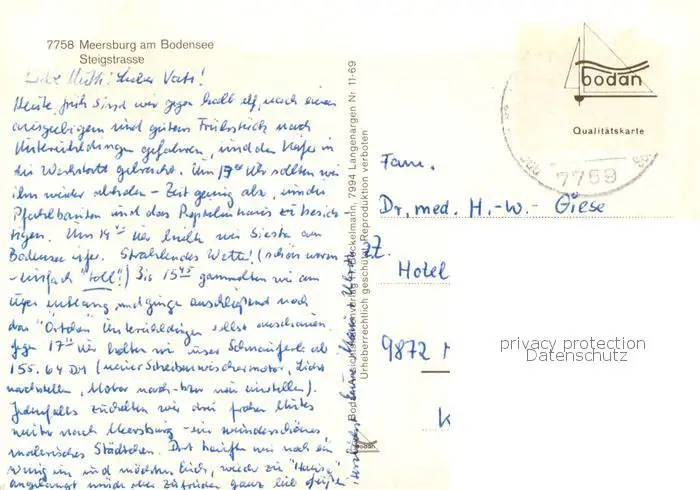 7758 Meersburg am Bodensee
Steigstrasse
Liebe Mutti! Lieber Vati!
Heute früh sind wir gegen halb elf, nach einem
ausgiebigen und gutem Frühstück nach
Unteruhldingen gefahren, und den Käfer in
die Werkstatt gebracht. Um 17⁰⁰ Uhr sollten wir
ihn wieder abholen - Zeit genug also, um die
Pfahlbauten und das Reptilienhaus zu besich
tigen. Um 14 Uhr hielten wir Siesta am
Bodensee ufer. Strahlendes Wetter! (schön warm
- einfach "toll"!) Bis 15⁴⁵ gammelten wir am
Ufer entlang und gingen anschließend noch
das "Örtchen" Unteruhldingen selbst anschauen.
Gegen 17 Uhr holten wir unser Schnauferle ab
155.64 DM (neuer Scheibenwischermotor, Licht
nachstellen, Motor nach- bzw neu einstellen).
Jedenfalls zuckelten wir drei frohen Mutes
weiter nach Meersburg - ein wunderschönes,
malerisches Städtchen. Dort kauften wir noch ein
wenig ein und möchten Euch, wieder zu "Hause"
angelangt müde aber zufrieden ganz lieb grüßen
Eure
Bodan
Beckelmann, 7994 Langenargen Nr 11-69
Urheberrechtlich geschützt - Reproduktion verboten
bodan
Qualitätskarte
7759
Fam.
Dr. med. H.-W.- Giese
zZ.
Hotel
9872 M
K
privacy protection
Datenschutz
bodan